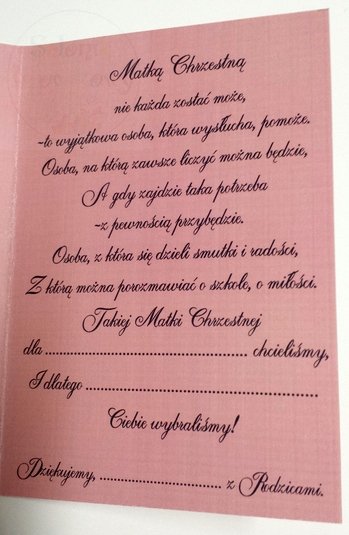 Matką Chrzestną
nie każda zostać może,
~to wyjątkowa osoba, która wysłucha, pomoże.
Osoba, na którą zawsze liczyć można będzie,
A gdy zajdzie taka potrzeba
~z pewnością przybędzie.
Osoba, z która się dzieli smutki i radości,
Z którą można porozmawiać o szkole, o miłości.
Takiej Matki Chrzestnej
dla ........................................ chcieliśmy,
I dlatego ..............................................
Ciebie wybraliśmy!
Dziękujemy, .............................. z Rodzicami.